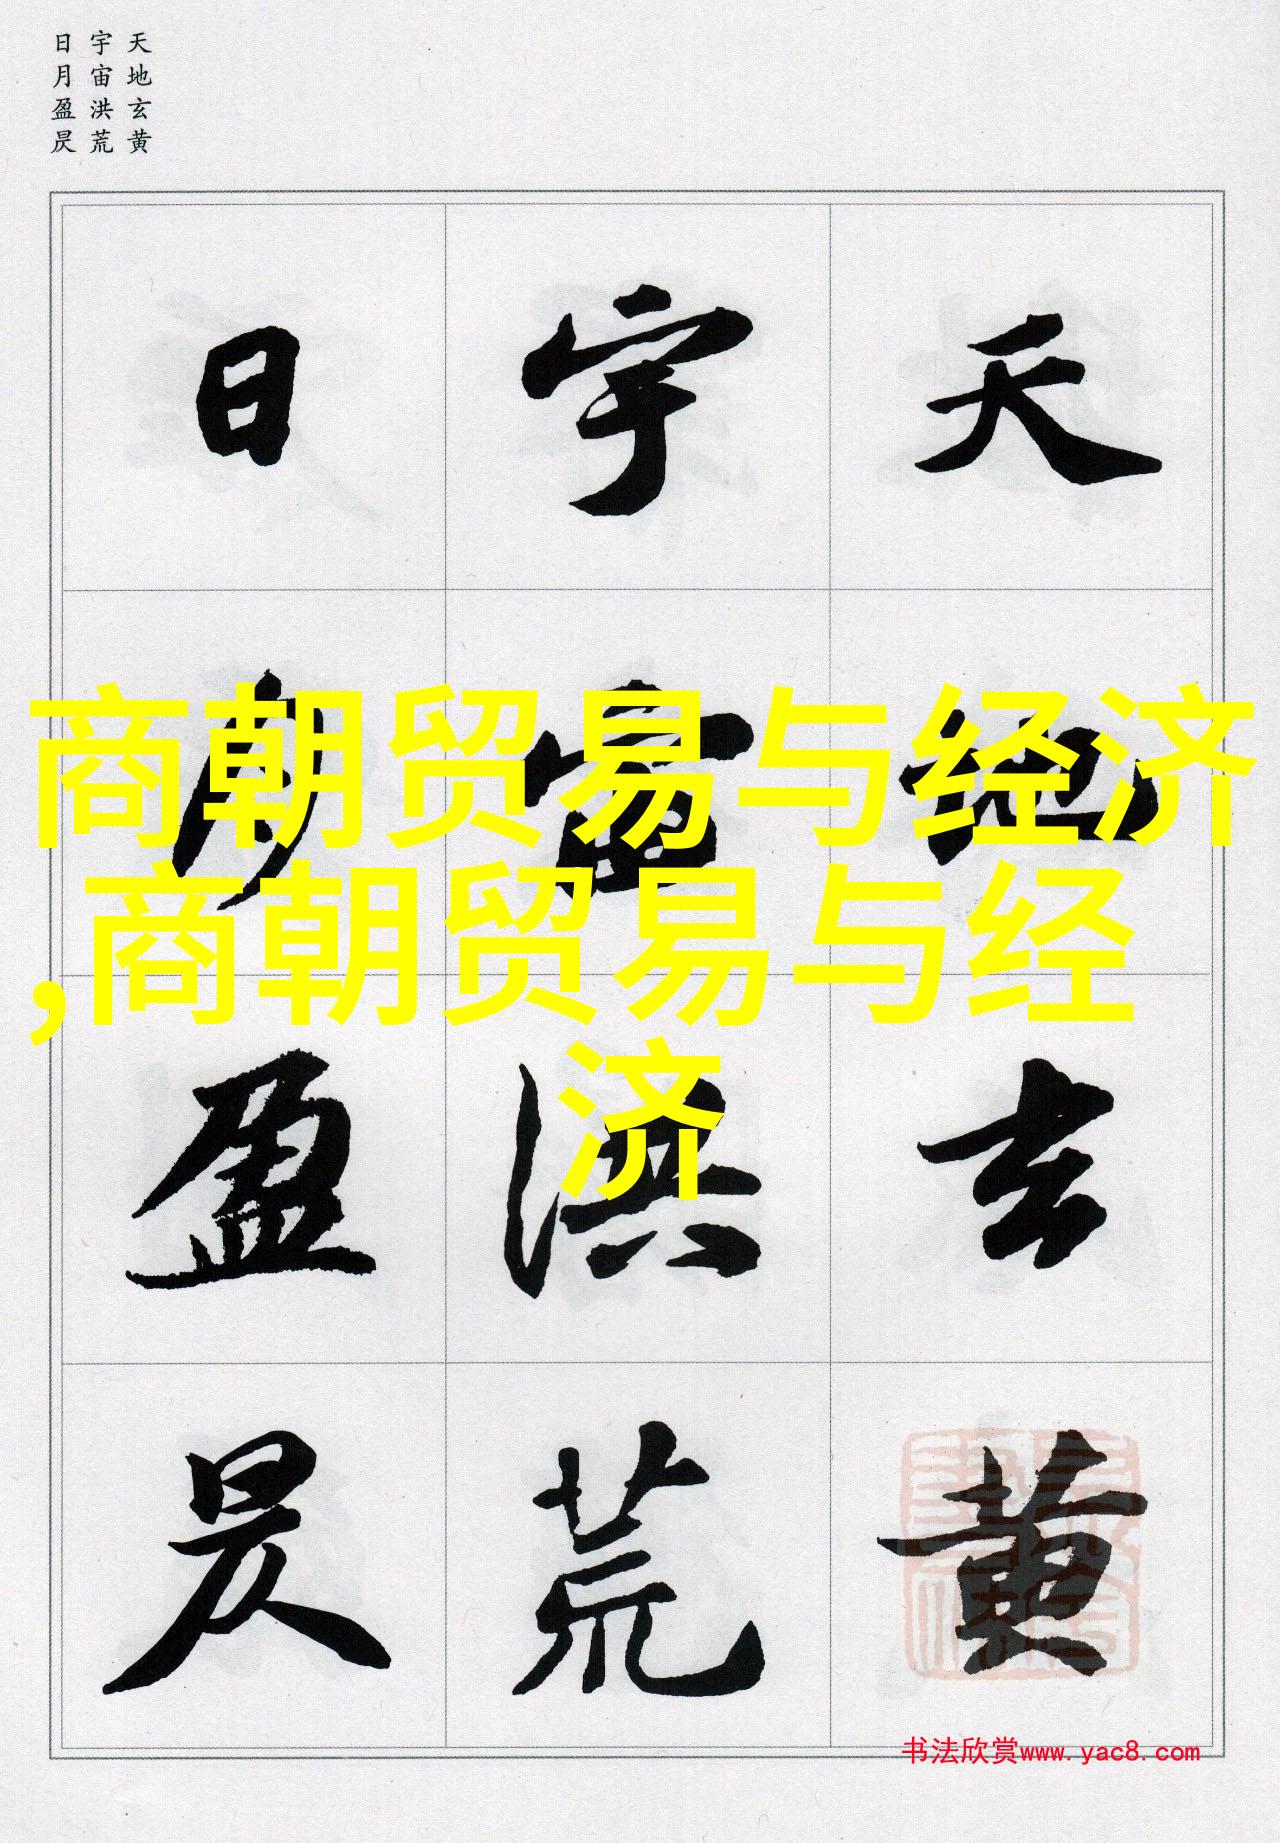 天地玄黄
宇宙洪荒
日月盈昃
天地玄黄
宇宙洪荒
日月盈昃
商朝贸易与经济
,商朝贸易与经
济
书法欣赏www.yac8.com